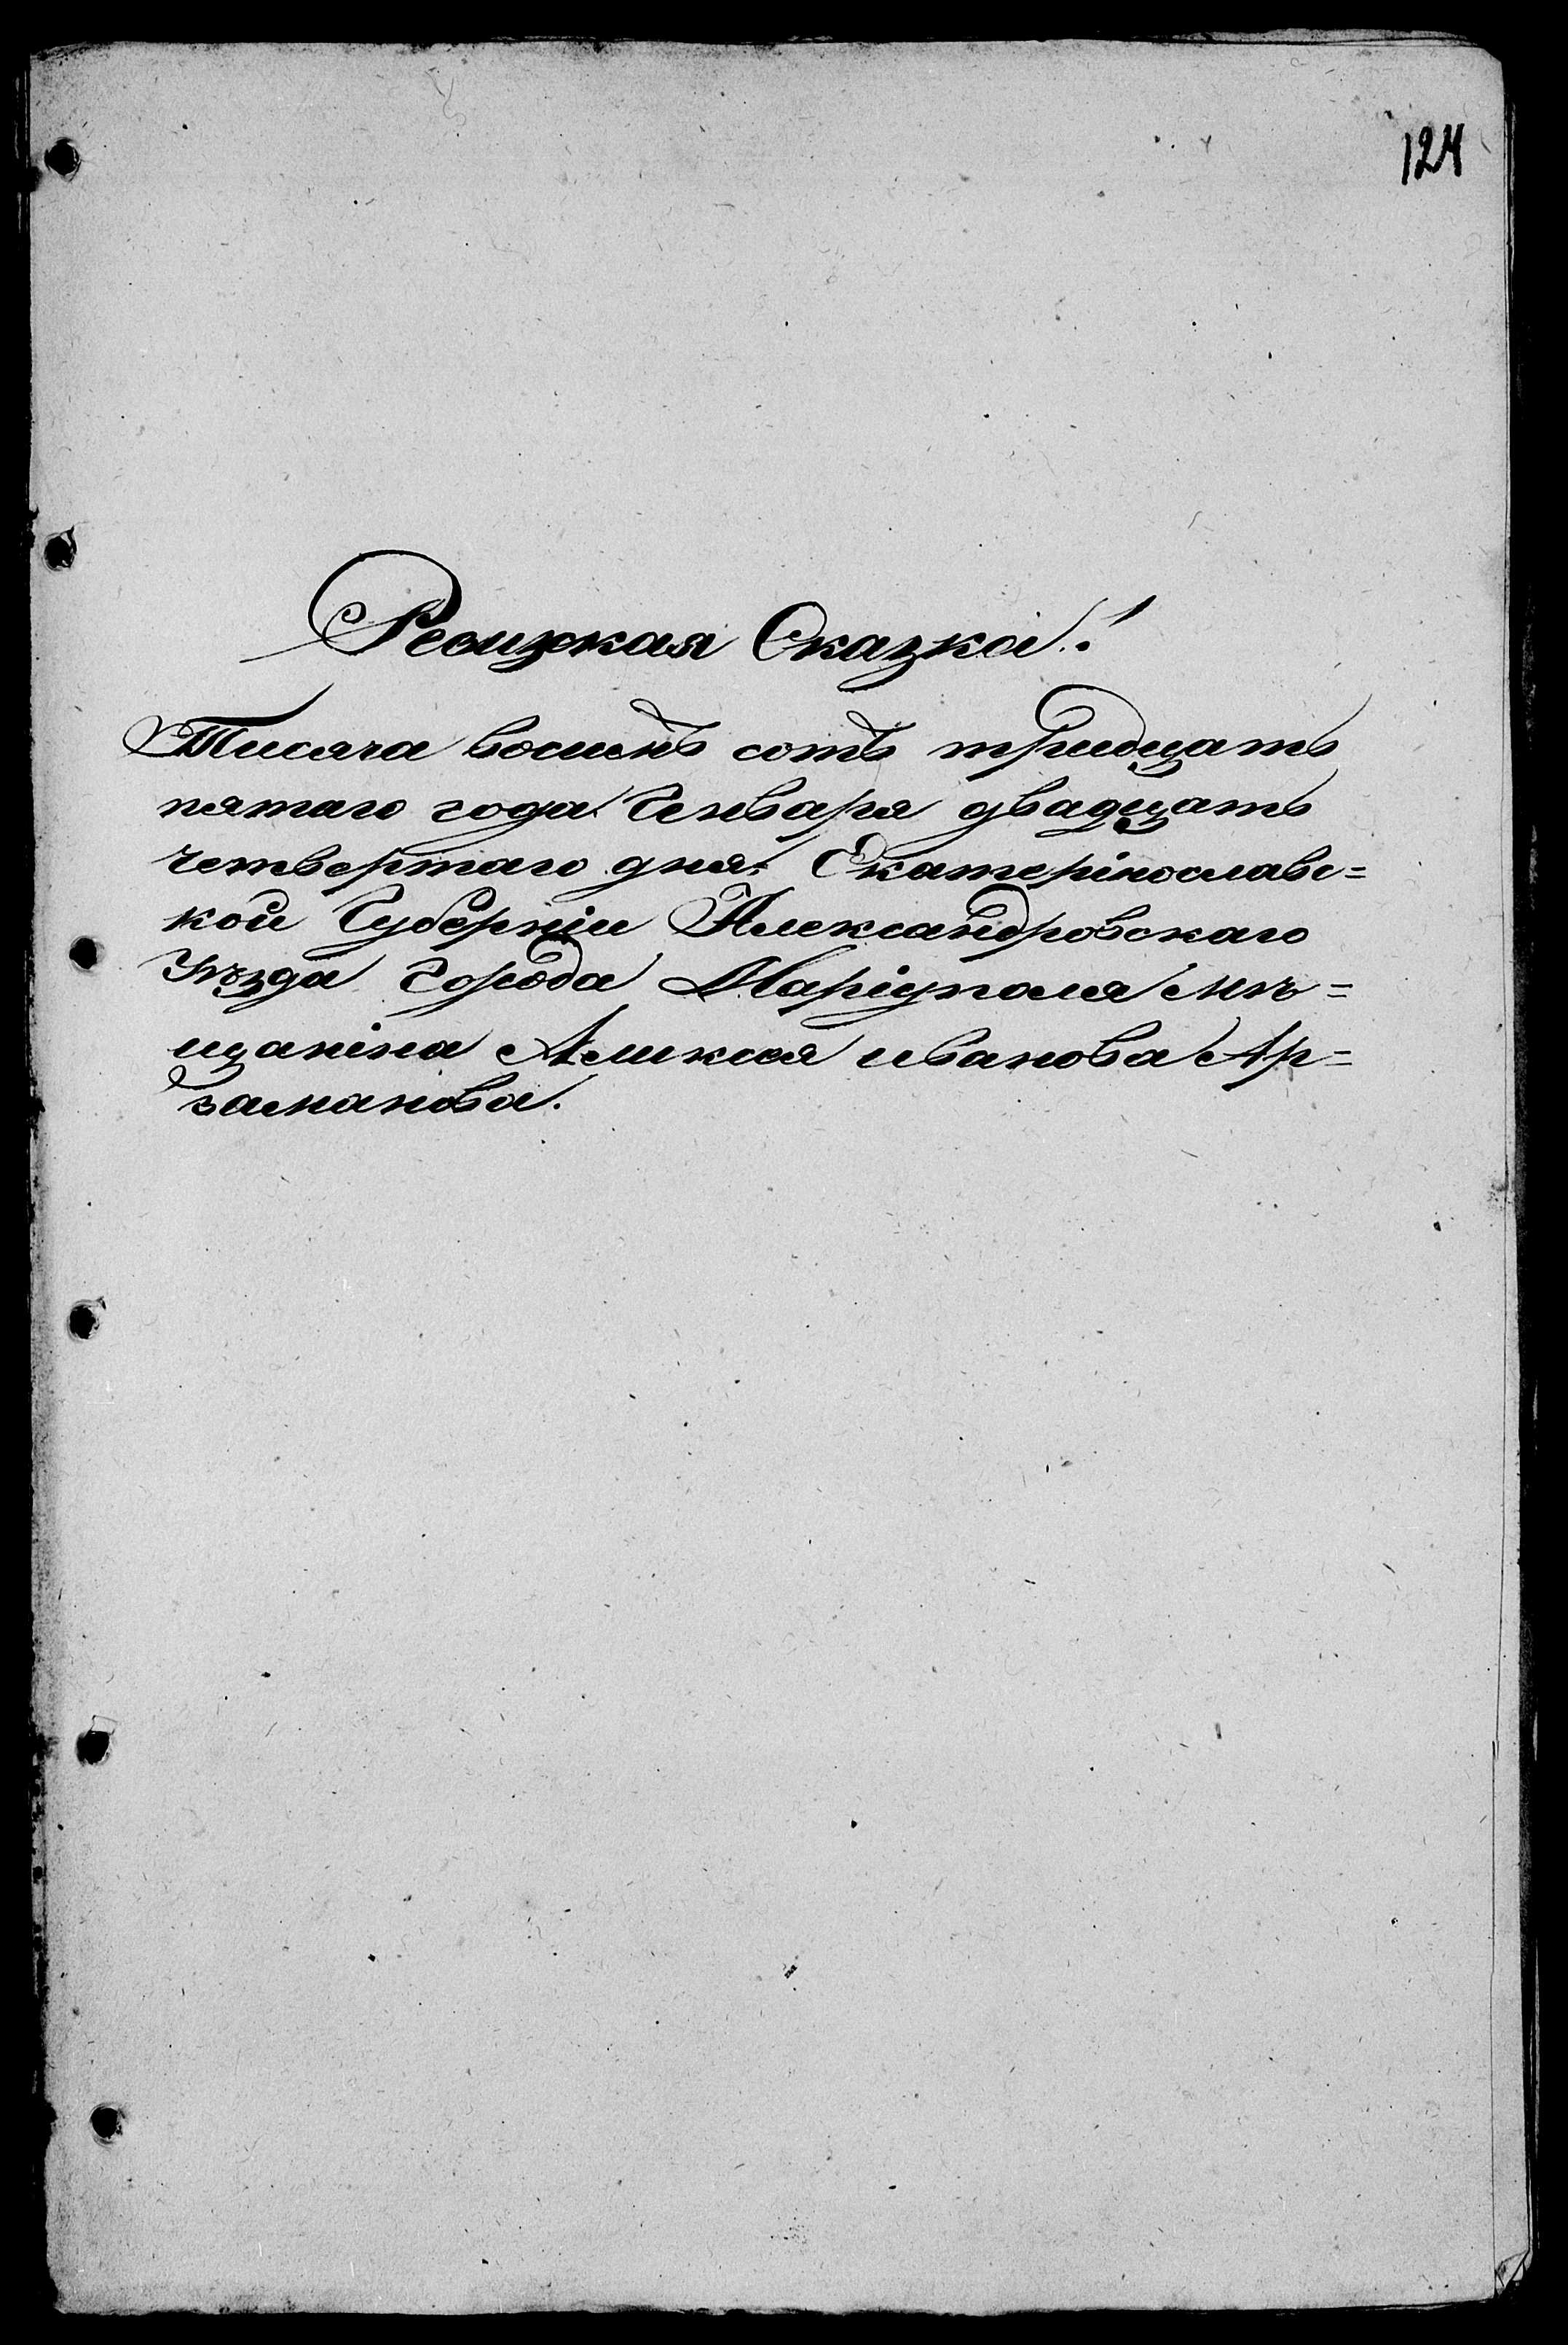 124
Ревизкая Сказка!
Тисяча восимъ сотъ тридцать
пятаго года Генваря двадцать
четвертаго дня. Екатерінославс=
кой Губерніи Александровскаго
Уезда Города Маріуполя мѣ=
щаніна Аликся иванова Ар=
заманова.